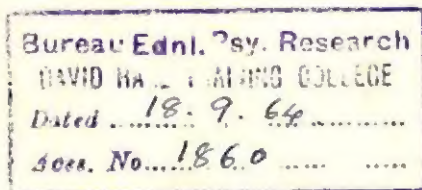 Bureau Ednl. Psy. Research
DAVID HARE TRAINING COLLEGE
Dated 18. 9. 64
Aces. No. 1860